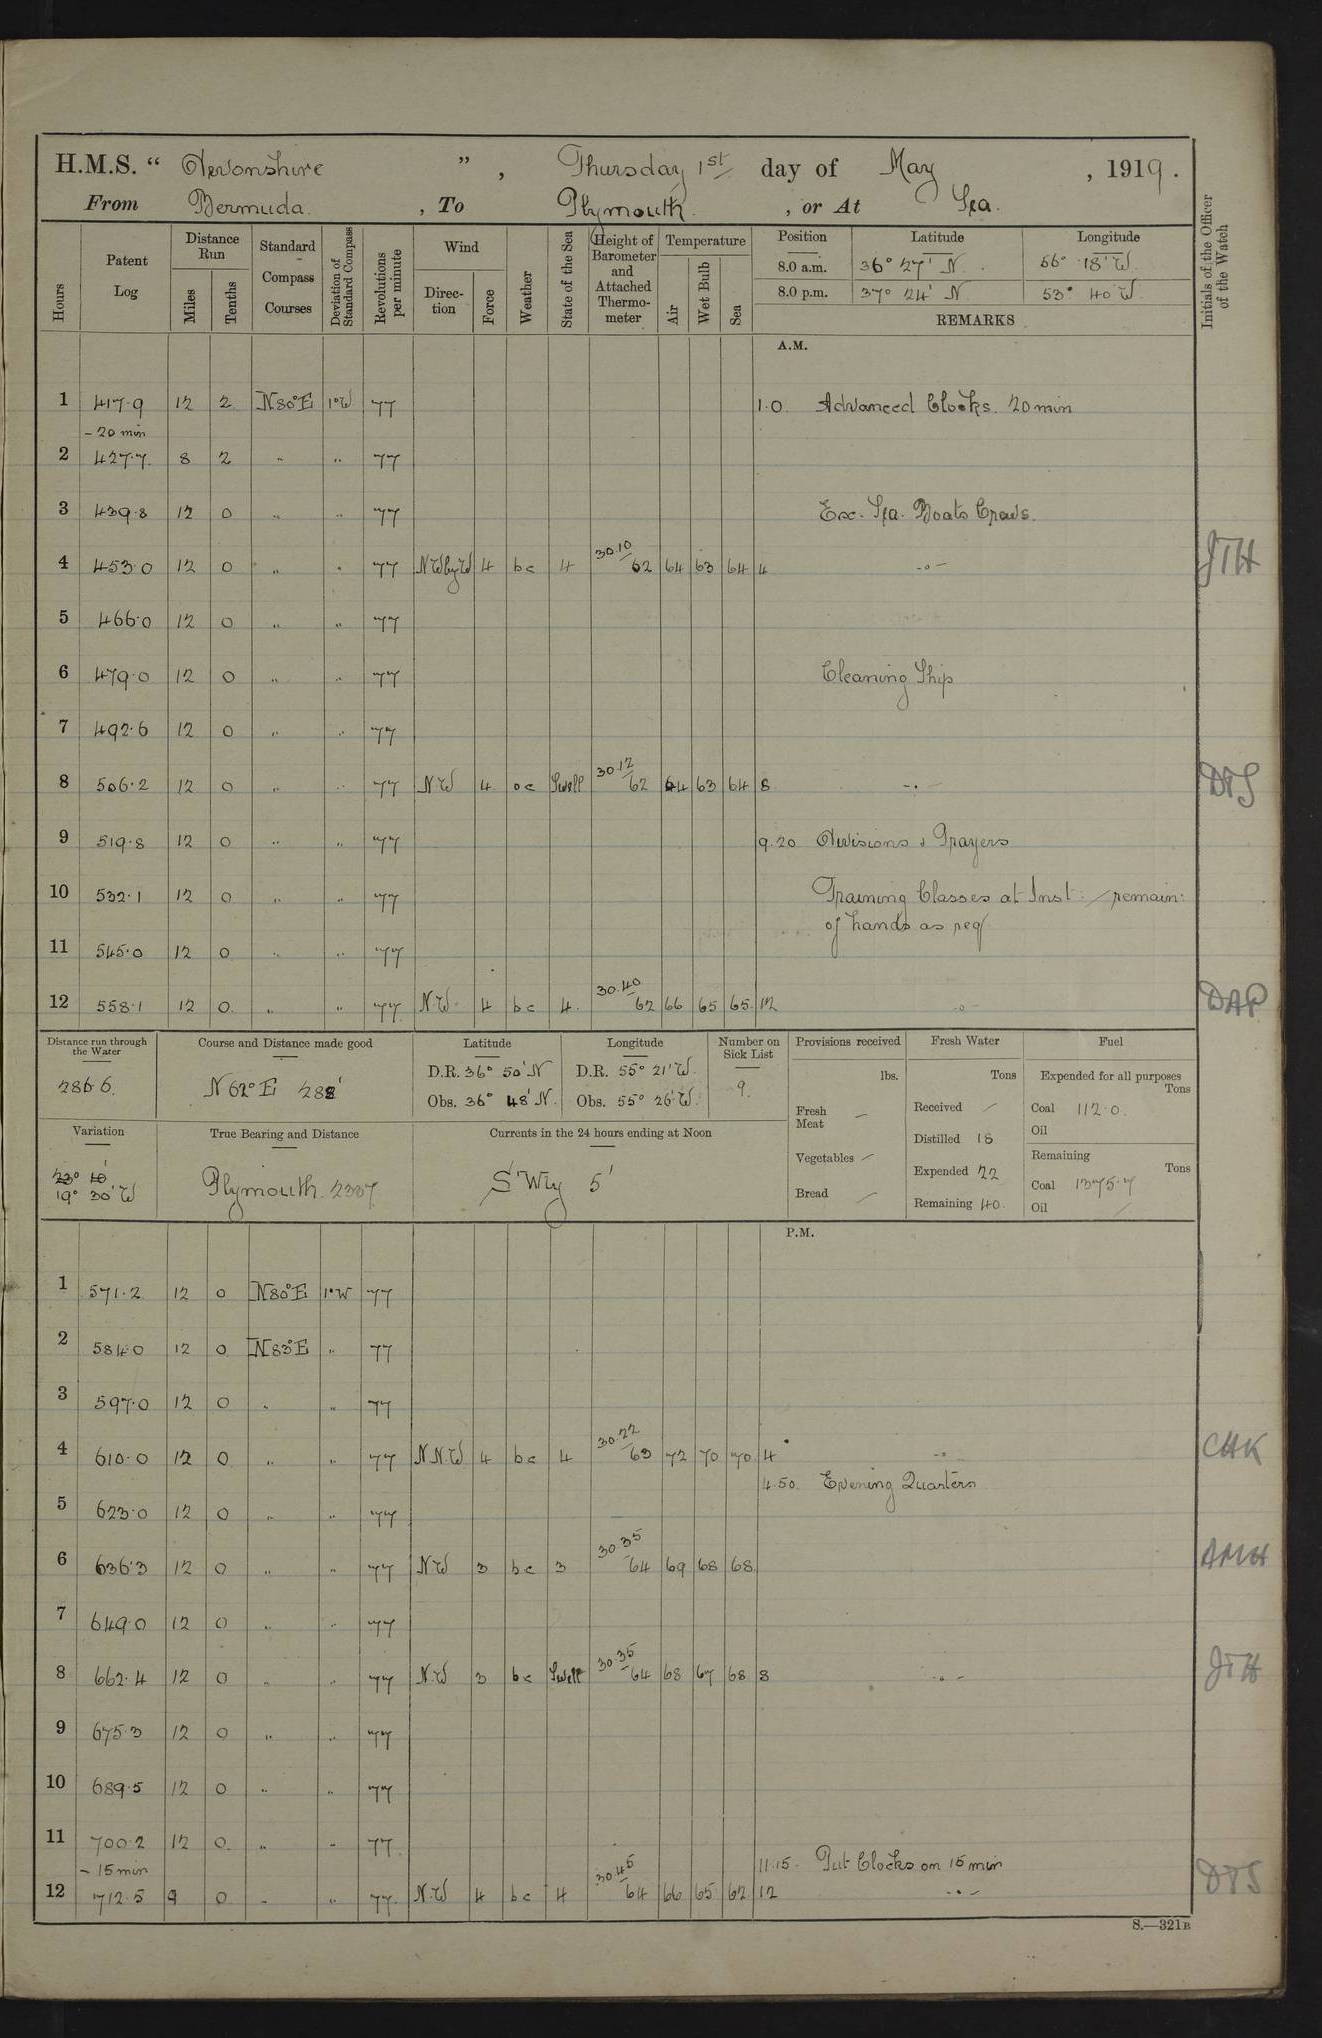 H.M.S. “ Devonshire ” , Thursday 1st day of May , 1919.
From Bermuda , To Plymouth , or At Sea.
Hours Patent Log Distance Run Miles Tenths Standard Compass Courses Deviation of Standard Compass Revolutions per minute Wind Direction Force Weather State of the Sea Height of Barometer and Attached Thermometer Temperature Air Wet Bulb Sea Position Latitude Longitude Initials of the Officer of the Watch
8.0 a.m. 36° 27' N 56° 18' W
8.0 p.m. 37° 24' N 53° 40 W
REMARKS
A.M.
1 417.9 12 2 N80°E 1°W 77 1.0 Advanced Clocks. 20 min
- 20 min
2 427.7 8 2 " " 77
3 439.8 12 0 " " 77 Exc. Sea. Boats Crews.
4 453.0 12 0 " " 77 NWbyW 4 bc 4 30.10 62 64 63 64 4 -"- JTH
5 466.0 12 0 " " 77
6 479.0 12 0 " " 77 Cleaning Ship
7 492.6 12 0 " " 77
8 506.2 12 0 " " 77 NW 4 oc Swell 30.12 62 64 63 64 8 -"-
9 519.8 12 0 " " 77 9.20 Divisions & Prayers
10 532.1 12 0 " " 77 Training Classes at Inst: / remain:
of hands as req
11 545.0 12 0 " " 77
12 558.1 12 0 " " 77 NW 4 bc 4 30.40 62 66 65 65 12 " DAP
Distance run through the Water 286.6
Course and Distance made good N 62° E 288'
Latitude D.R. 36° 50' N Obs. 36° 48' N.
Longitude D.R. 55° 21' W. Obs. 55° 26' W.
Number on Sick List 9.
Provisions received lbs. Fresh Meat — Vegetables — Bread —
Fresh Water Tons Received — Distilled 18 Expended 22 Remaining 40.
Fuel Expended for all purposes Tons Coal 112.0. Oil
Remaining Tons Coal 1375.7 Oil —
Variation 23° 10' 19° 30' W
True Bearing and Distance Plymouth 2337
Currents in the 24 hours ending at Noon S'Wly 5'
P.M.
1 571.2 12 0 N80°E 1°W 77
2 584.0 12 0 N83°E " 77
3 597.0 12 0 " " 77
4 610.0 12 0 " " 77 N.N.W. 4 bc 4 30.22 63 72 70 70 4 -"- CHK
4.50. Evening Quarters
5 623.0 12 0 " " 77
6 636.3 12 0 " " 77 NW 3 bc 3 30.35 64 69 68 68
7 649.0 12 0 " " 77
8 662.4 12 0 " " 77 N.W 3 bc Swell 30.36 64 68 67 68 8 -"- JTH
9 675.3 12 0 " " 77
10 689.5 12 0 " " 77
11 700.2 12 0 " " 77
- 15 min 11.15. Put Clocks on 15 min
12 712.5 9 0 " " 77 N.W 4 bc 4 30.45 64 66 65 62 12 -"-
S.—321B